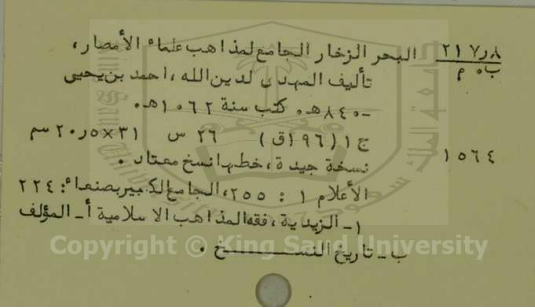 ٢١٧٫٨ البحر الزخار الجامع لمذاهب علماء الأمصار،
ب٠م تأليف المهدى لدين الله، احمد بن يحيى
-٨٤٠هـ. كتب سنة ١٠٦٢هـ.
ج١ (١٩٦ق) ٢٦ س ٣١×٢٠٫٥ سم
١٥٦٤ نسخة جيدة، خطها نسخ معتاد.
الأعلام ١: ٢٥٥، الجامع الكبير بصنعاء: ٢٢٤
١- الزيدية، فقه المذاهب الاسلامية أ- المؤلف
Copyright © King Saud University
ب- تاريخ النسخ.